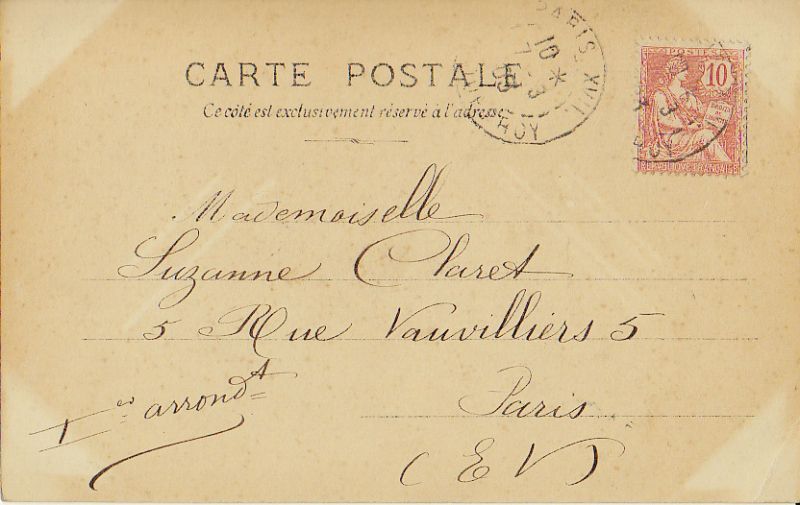 CARTE POSTALE
Ce côté est exclusivement réservé à l'adresse
POSTES
10
REPUBLIQUE FRANÇAISE
PARIS XVII
10
Mademoiselle
Suzanne Claret
5 Rue Vauvilliers 5
Paris
(EV)
Ier arrondt